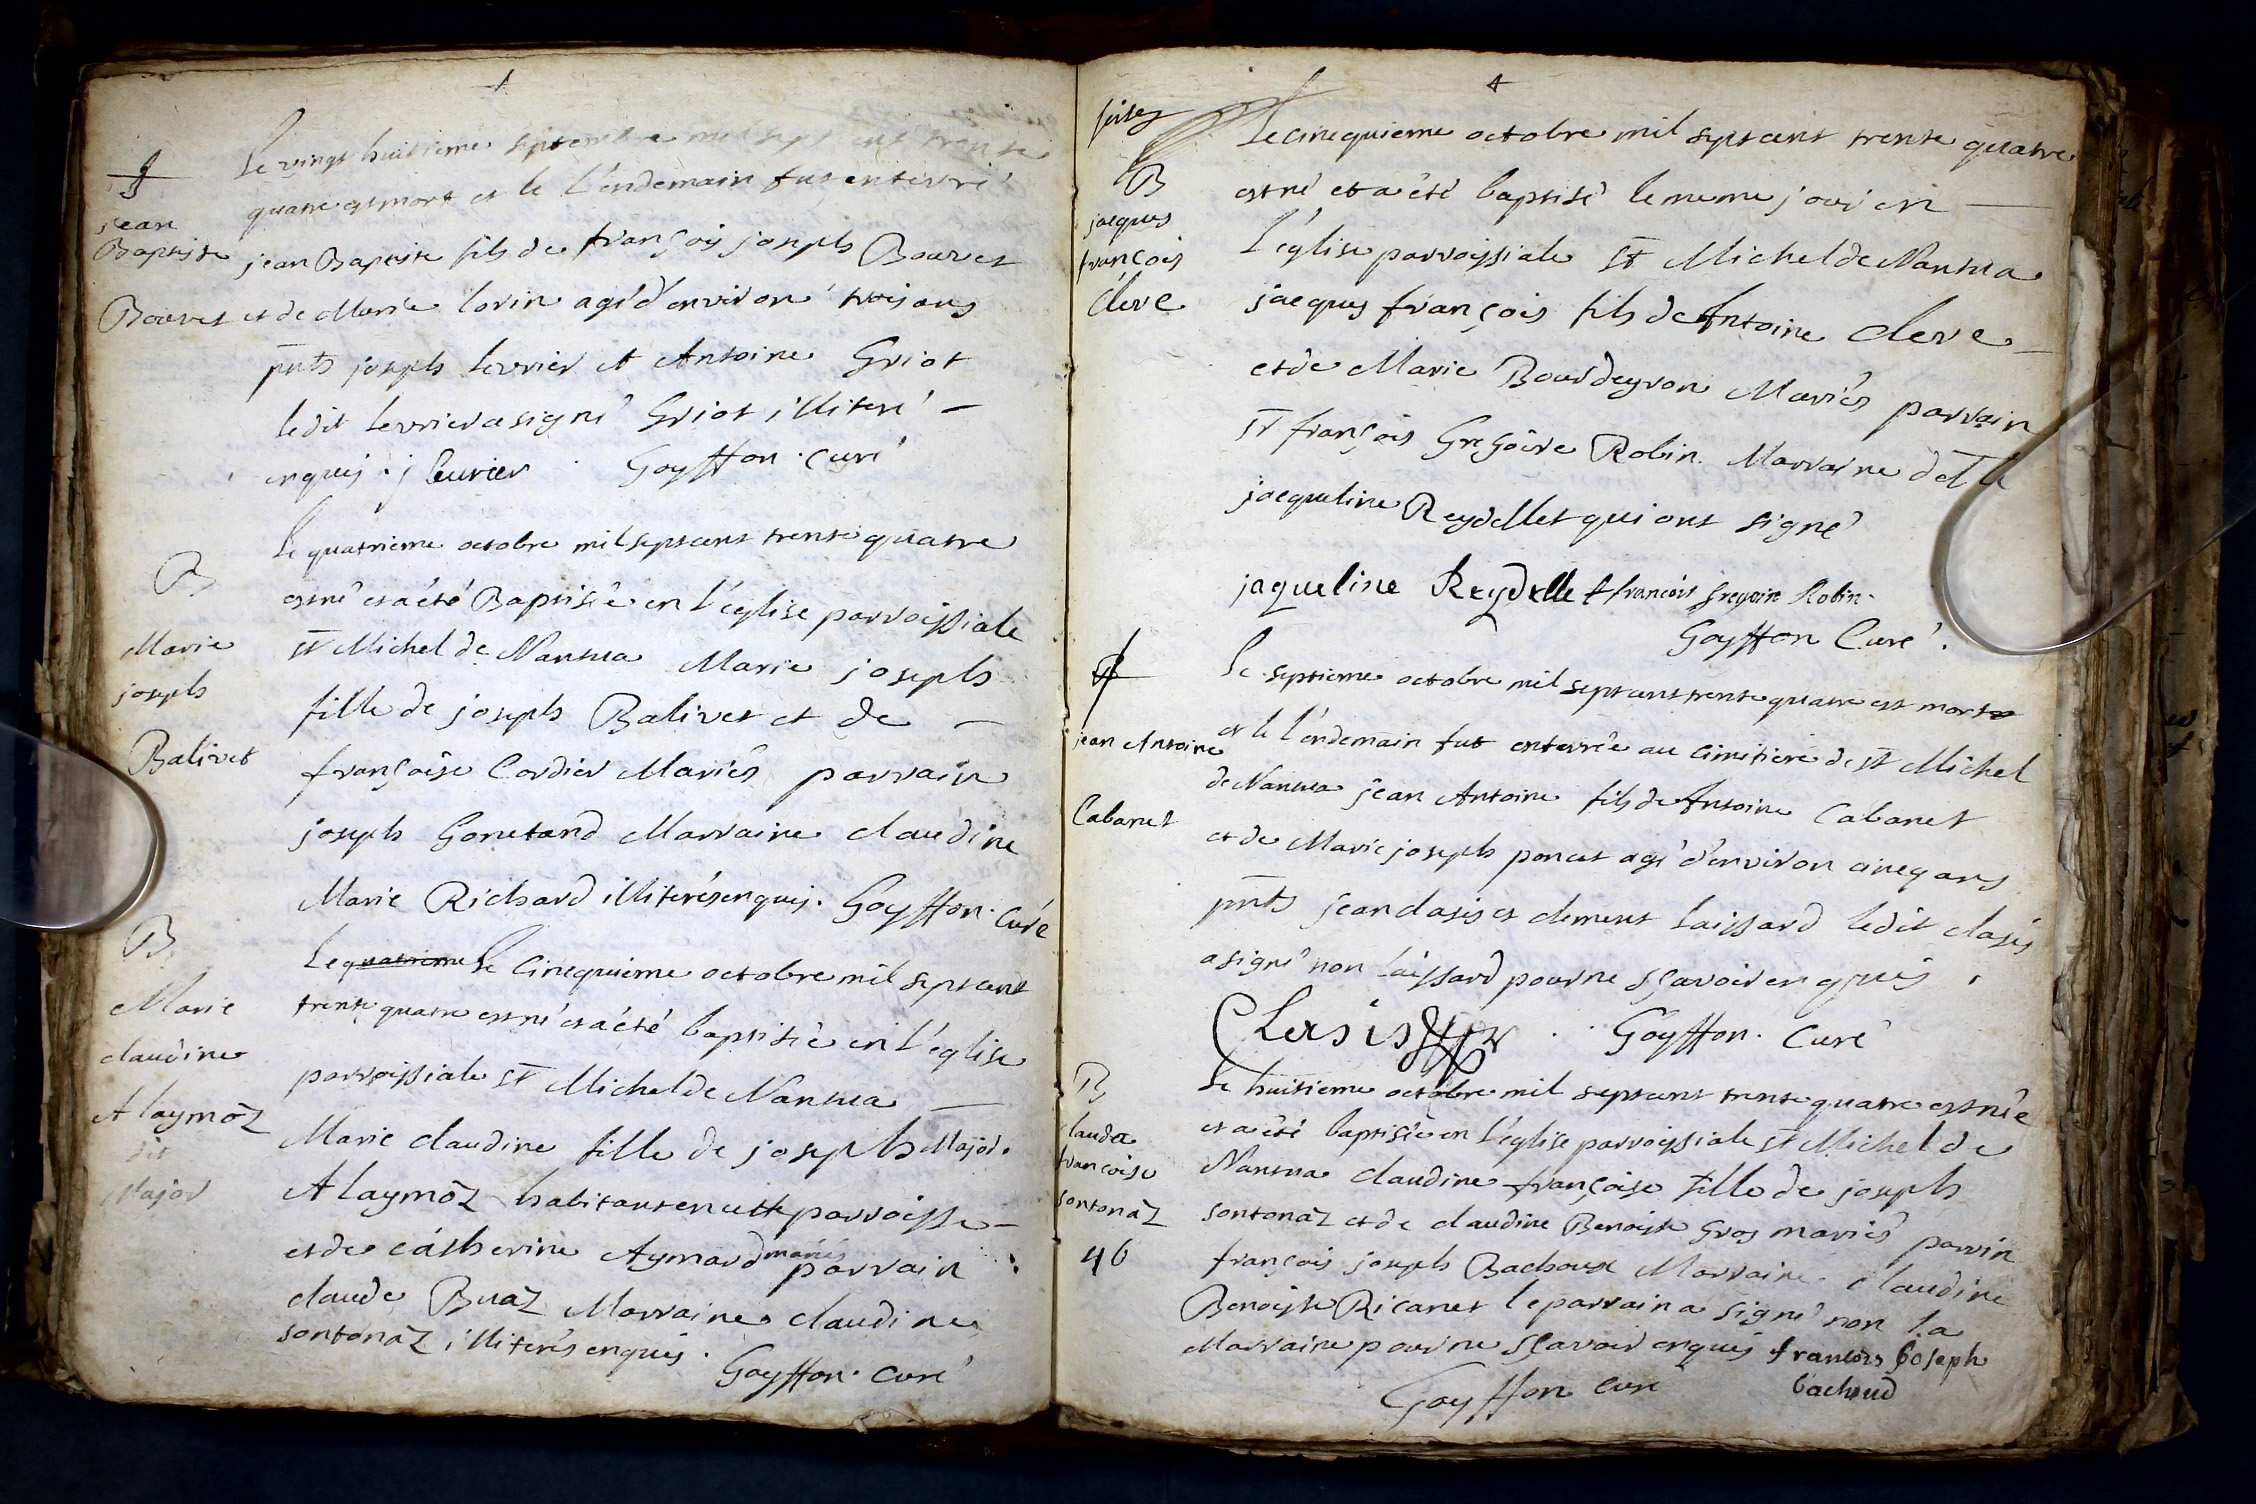 Le vingt huitieme septembre mil sept cent trente
quatre est mort et le l'endemain fut enterré
jean
Baptiste
jean Baptiste fils de françois joseph Bouvet
Bouvet
et de Marie lorin agé d'environ trois ans
pnts joseph levrier et Antoine Griot
ledit levrier a signé Griot illiteré
enquis. j leurier Goyffon. curé
Le quatrieme octobre mil sept cent trente quatre
B
est né et a été Baptisée en l'église parroissiale
Marie
joseph
Balivet
St Michel de Nantua Marie joseph
fille de joseph Balivet et de
françoise Cordier Mariés parrain
joseph Gonetand Marraine claudine
Marie Richard illiterés enquis. Goyffon. Curé
B
Marie
claudine
Alaymoz
dit
Major
Le quatrieme Le Cinequieme octobre mil sept cent
trente quatre est né et a été baptisée en l'église
parroissiale St Michel de Nantua
Marie claudine fille de joseph Major
Alaymoz habitant en cette parroisse
et de catherine Aymard mariés parrain
claude Buaz Marraine claudine
sontonaz illiterés enquis.
Goyffon. curé
B
jacques
françois
Cleve
Le cinequieme octobre mil sept cent trente quatre
est né et a été baptisé le meme jour en
l'église parroissiale St Michel de Nantua
jacques françois fils de Antoine Cleve
et de Marie Bourdeyron Mariés parrain
Sr françois Gregoire Robin Marraine delle
jacqueline Reydellet qui ont signé
jaqueline Reydellet francois gregoire Robin.
Goyffon Curé.
jean Antoine
Cabanet
Le septieme octobre mil sept cent trente quatre est mort
et le l'endemain fut enterrée au cimitiere de St Michel
de Nantua jean Antoine fils de Antoine Cabanet
et de Marie joseph poncet agé d'environ cinq ans
pnts jean clasis et clement laissard ledit clasis
a signé non laissard pour ne sçavoir enquis.
Clasis Goyffon. Curé
B
claude
françoise
sontonaz
46
Le huitieme octobre mil sept cent trente quatre est née
et a été baptisée en l'église parroissiale St Michel de
Nantua claudine françoise fille de joseph
sontonaz et de claudine Benoiste Gros mariés parrin
françois joseph Bachoux Marraine claudine
Benoiste Ricanet le parrain a signé non la
Marraine pour ne sçavoir enquis francois joseph
bachoud
Goyffon curé